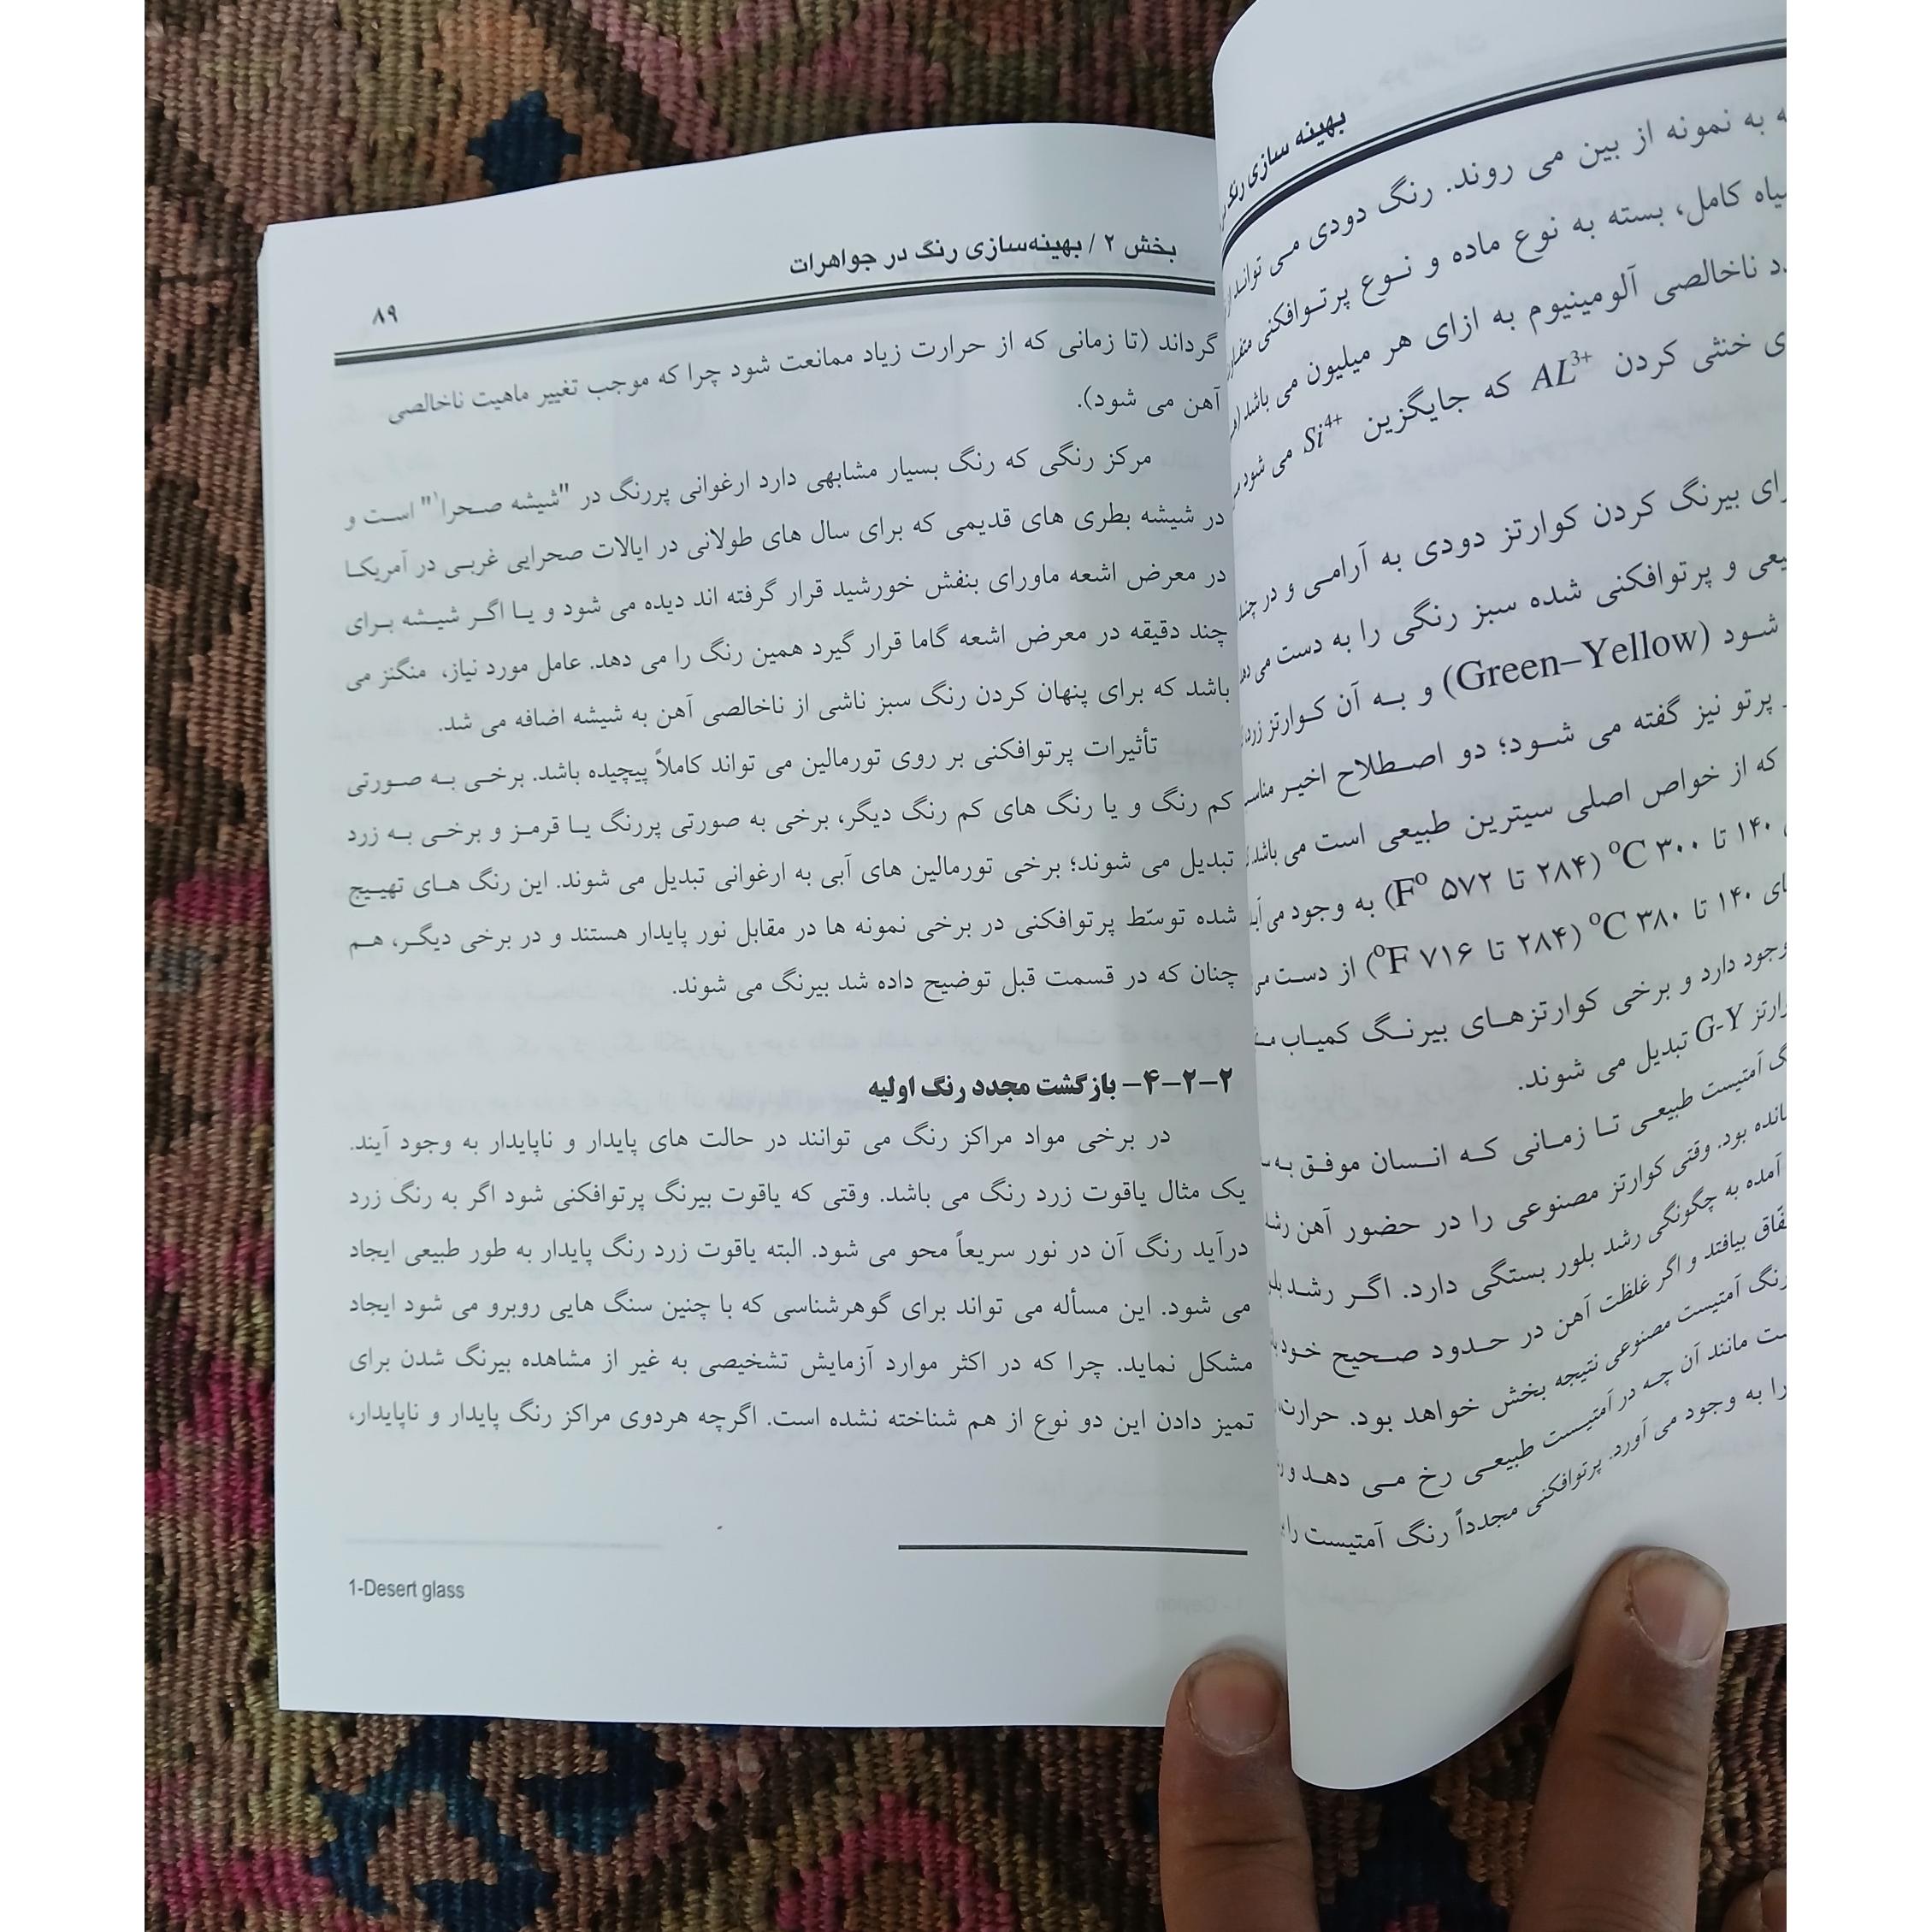 بهینه سازی رنگ
ه به نمونه از بین می روند. رنگ دودی می تواند
یاه کامل، بسته به نوع ماده و نوع پرتوافکنی
د ناخالصی آلومینیوم به ازای هر میلیون می باشد
ی خنثی کردن AL3+ که جایگزین Si4+ می شود
رای بیرنگ کردن کوارتز دودی به آرامی و در
یعی و پرتوافکنی شده سبز رنگی را به دست می
شود (Green–Yellow) و به آن کوارتز زرد
پرتو نیز گفته می شود؛ دو اصطلاح اخیر
که از خواص اصلی سیترین طبیعی است می باشد.
۱۴۰ تا ۳۰۰ oC (۲۸۴ تا ۵۷۲ Fo) به وجود می
ای ۱۴۰ تا ۳۸۰ oC (۲۸۴ تا ۷۱۶ oF) از دست می
وجود دارد و برخی کوارتزهای بیرنگ کمیاب
وارتز G-Y تبدیل می شوند.
گ آمتیست طبیعی تا زمانی که انسان موفق به
مانده بود. وقتی کوارتز مصنوعی را در حضور آهن
آمده به چگونگی رشد بلور بستگی دارد. اگر رشد
فاق بیافتد و اگر غلظت آهن در حدود صحیح خود
رنگ آمتیست مصنوعی نتیجه بخش خواهد بود. حرارت
ست مانند آن چه در آمتیست طبیعی رخ می دهد و
را به وجود می آورد. پرتوافکنی مجدداً رنگ آمتیست را
بخش ۲ / بهینه‌سازی رنگ در جواهرات
۸۹
گرداند (تا زمانی که از حرارت زیاد ممانعت شود چرا که موجب تغییر ماهیت ناخالصی
آهن می شود).
مرکز رنگی که رنگ بسیار مشابهی دارد ارغوانی پررنگ در "شیشه صحرا۱" است و
در شیشه بطری های قدیمی که برای سال های طولانی در ایالات صحرایی غربی در آمریکا
در معرض اشعه ماورای بنفش خورشید قرار گرفته اند دیده می شود و یا اگر شیشه برای
چند دقیقه در معرض اشعه گاما قرار گیرد همین رنگ را می دهد. عامل مورد نیاز، منگنز می
باشد که برای پنهان کردن رنگ سبز ناشی از ناخالصی آهن به شیشه اضافه می شد.
تأثیرات پرتوافکنی بر روی تورمالین می تواند کاملاً پیچیده باشد. برخی به صورتی
کم رنگ و یا رنگ های کم رنگ دیگر، برخی به صورتی پررنگ یا قرمز و برخی به زرد
تبدیل می شوند؛ برخی تورمالین های آبی به ارغوانی تبدیل می شوند. این رنگ های تهییج
شده توسّط پرتوافکنی در برخی نمونه ها در مقابل نور پایدار هستند و در برخی دیگر، هم
چنان که در قسمت قبل توضیح داده شد بیرنگ می شوند.
۲–۲–۴– بازگشت مجدد رنگ اولیه
در برخی مواد مراکز رنگ می توانند در حالت های پایدار و ناپایدار به وجود آیند.
یک مثال یاقوت زرد رنگ می باشد. وقتی که یاقوت بیرنگ پرتوافکنی شود اگر به رنگ زرد
درآید رنگ آن در نور سریعاً محو می شود. البته یاقوت زرد رنگ پایدار به طور طبیعی ایجاد
می شود. این مسأله می تواند برای گوهرشناسی که با چنین سنگ هایی روبرو می شود ایجاد
مشکل نماید. چرا که در اکثر موارد آزمایش تشخیصی به غیر از مشاهده بیرنگ شدن برای
تمیز دادن این دو نوع از هم شناخته نشده است. اگرچه هردوی مراکز رنگ پایدار و ناپایدار،
1-Desert glass